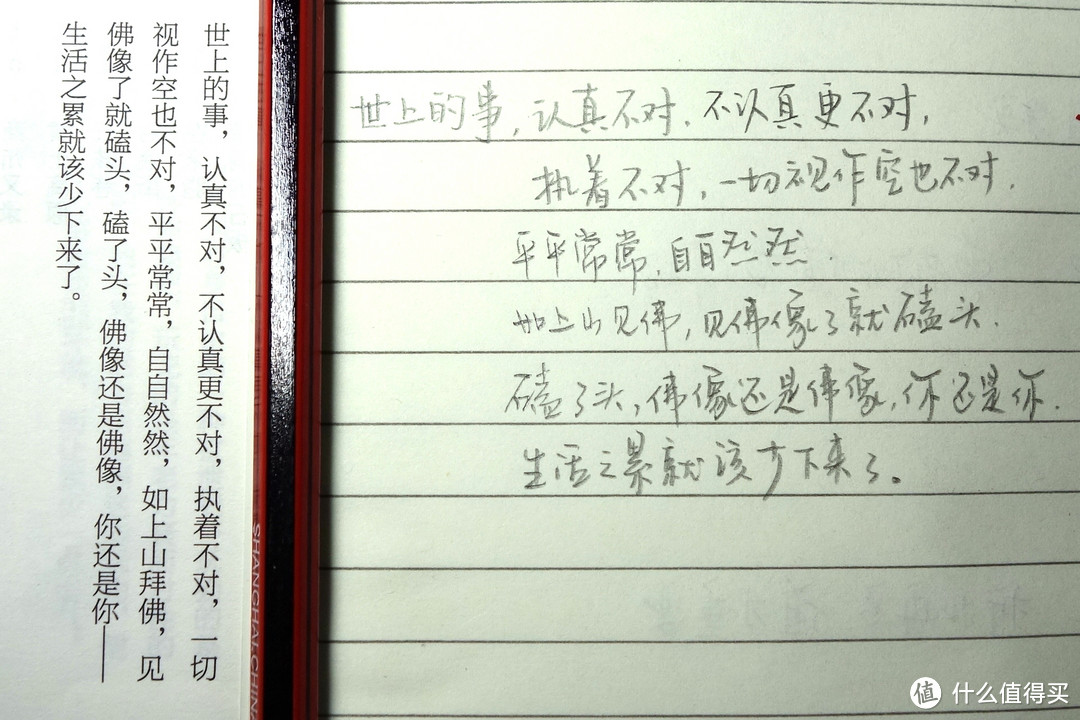 世上的事，认真不对，不认真更不对，执着不对，一切
视作空也不对，平平常常，自自然然，如上山拜佛，见
佛像了就磕头，磕了头，佛像还是佛像，你还是你——
生活之累就该少下来了。
SHANGHAI·CHIN
世上的事，认真不对，不认真更不对，
执着不对，一切视作空也不对．
平平常常，自自然然．
如上山见佛，见佛像了就磕头．
磕了头，佛像还是佛像，你还是你．
生活之累就该少下来了。
值 什么值得买